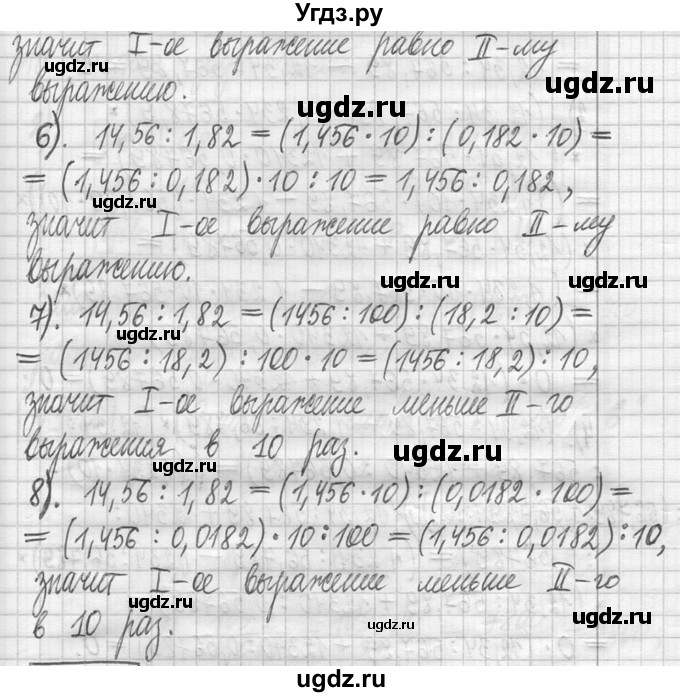 Угдз.ру
значит I-ое выражение равно II-му
ugdz.ru ugdz.ru
выражению.
ugdz.ru ugdz.ru
6). 14,56 : 1,82 = (1,456 · 10) : (0,182 · 10) =
= (1,456 : 0,182) · 10 : 10 = 1,456 : 0,182,
ugdz.ru ugdz.ru
значит I-ое выражение равно II-му
выражению.
ugdz.ru ugdz.ru
7). 14,56 : 1,82 = (1456 : 100) : (18,2 : 10) =
= (1456 : 18,2) : 100 · 10 = (1456 : 18,2) : 10,
ugdz.ru ugdz.ru
значит I-ое выражение меньше II-го
выражения в 10 раз.
ugdz.ru ugdz.ru
8). 14,56 : 1,82 = (1,456 · 10) : (0,0182 · 100) =
= (1,456 : 0,0182) · 10 : 100 = (1,456 : 0,0182) : 10,
ugdz.ru ugdz.ru
значит I-ое выражение меньше II-го
ugdz.ru
в 10 раз.
ugdz.ru
ugdz.ru